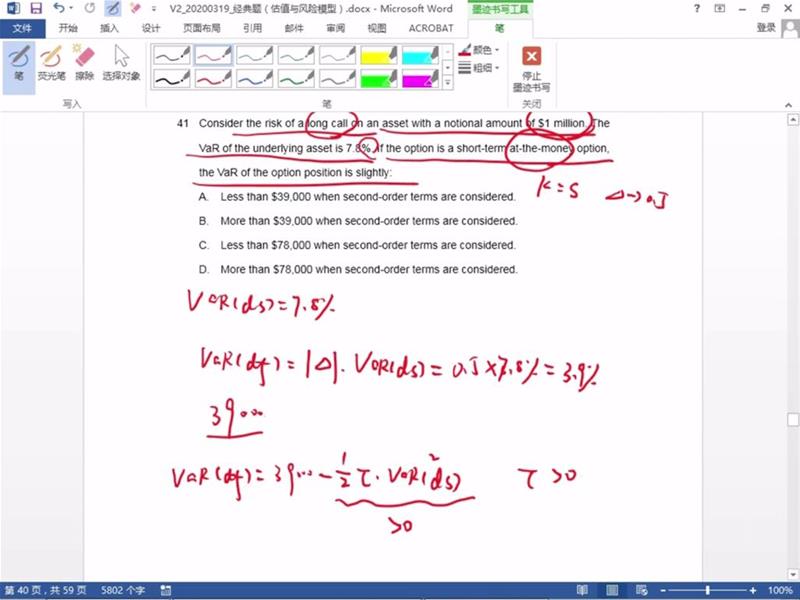 V2_20200319_经典题（估值与风险模型）.docx - Microsoft Word
墨迹书写工具
文件 开始 插入 设计 页面布局 引用 邮件 审阅 视图 ACROBAT 笔 登录
笔 荧光笔 擦除 选择对象 颜色 粗细 停止墨迹书写
写入 笔 关闭
41 Consider the risk of a long call on an asset with a notional amount of $1 million. The
VaR of the underlying asset is 7.8%. If the option is a short-term at-the-money option,
the VaR of the option position is slightly:
K=S Δ→0.5
A. Less than $39,000 when second-order terms are considered.
B. More than $39,000 when second-order terms are considered.
C. Less than $78,000 when second-order terms are considered.
D. More than $78,000 when second-order terms are considered.
VaR(ds)=7.8%
VaR(df)=|Δ|·VaR(ds)=0.5×7.8%=3.9%
39000
VaR(df)=39000-½τ·VaR²(ds) τ>0
>0
第 40 页，共 59 页 5802 个字 100%